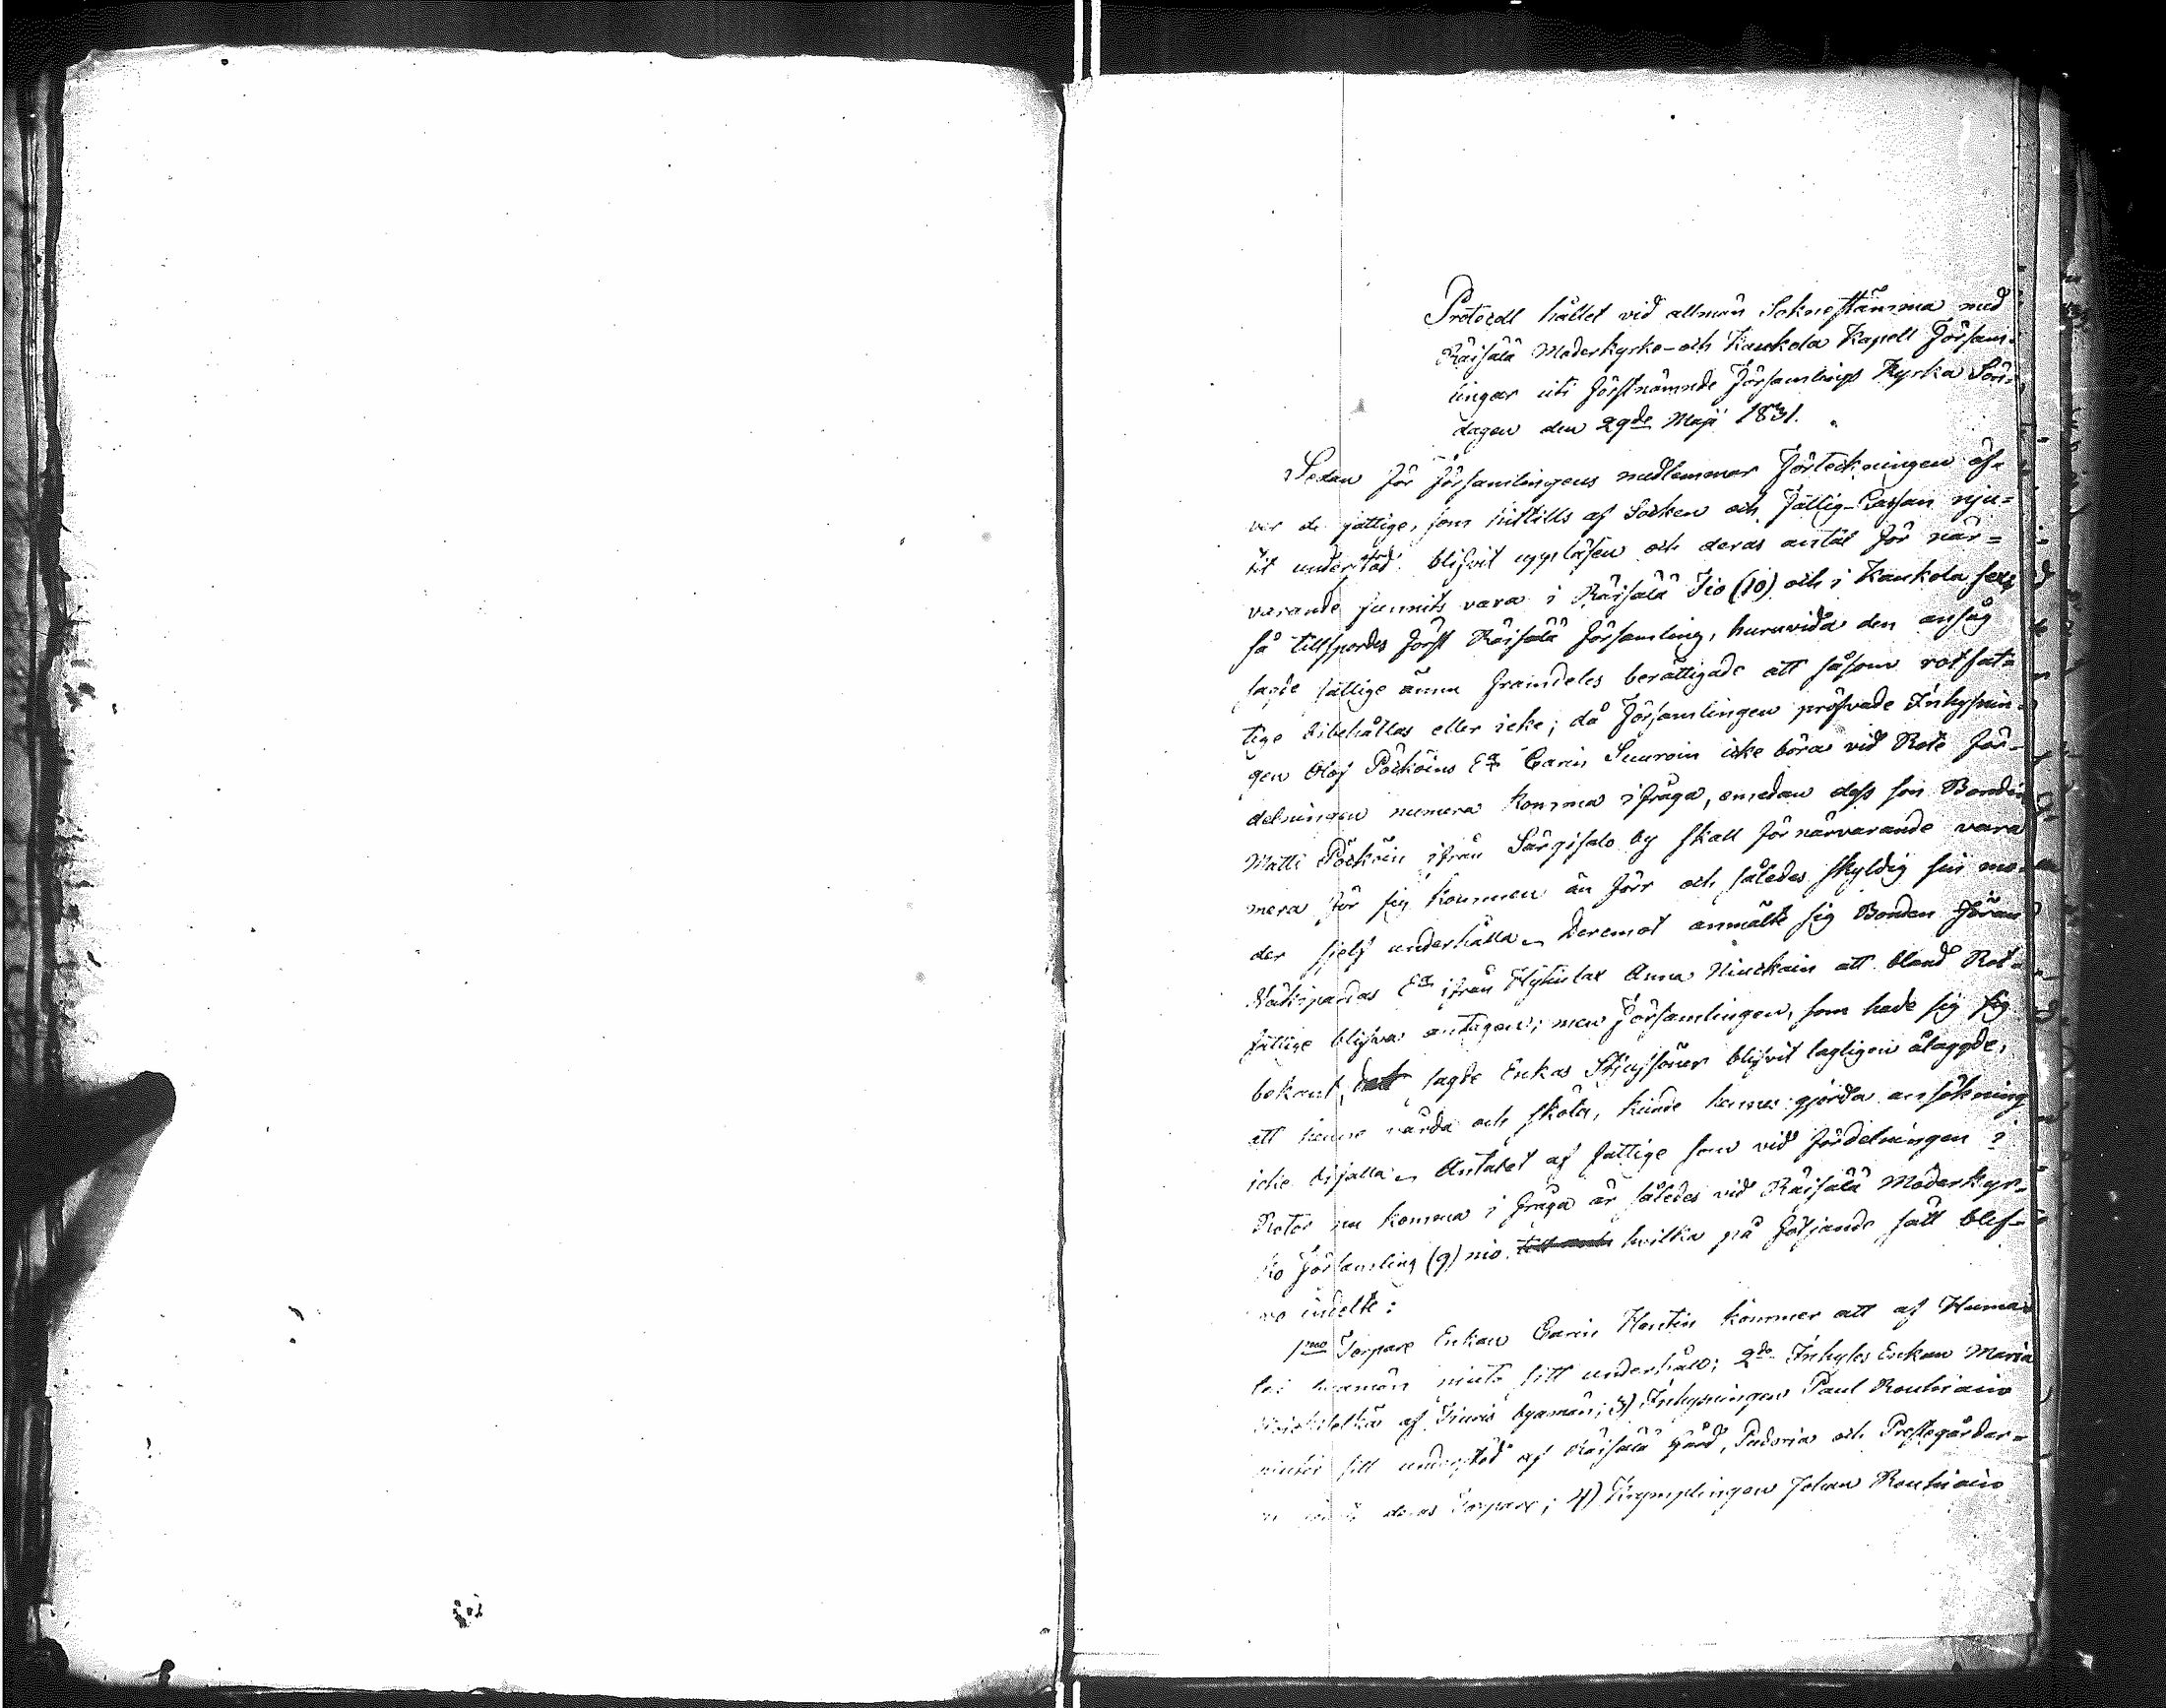 Protocoll hållet vid allmän Sokne stämma med
Räisälä Moderkyrko- och Kaukola Kapell Försam-
lingar uti förstnämnde Församlings Kyrka Sön-
dagen den 29de Maji 1831.
Sedan för Församlingens medlemmar Förteckningen öf-
ver de fattige, som hittills af Socken och Fattig-Cassan nju-
tit understöd blifvit uppläsen och deras antal för när-
varande funnits vara i Räisälä Tio (10) och i Kaukola sex,
så tillspordes först Räisälä församling, huruvida den ansåg
sagde fattige ännu framdeles berättigade att såsom rotfat-
tige bibehållas eller icke; då Församlingen pröfvade Inhysin-
gen Olof Pöcköins Ea Carin Suuroin icke böra vid Rote för-
delningen numera komma ifråga, emedan dess son Bonden
Matti Pöcköin ifrån Särgisalo by skall för närvarande vara
mera för sig kommen än förr och således skyldig sin mo-
der sjelf underhålla. Deremot anmälte sig Bonden Göran
Näkipardas Ea ifrån Hytinlax Anna Hinckain att bland Rot-
fattige blifva antagen; men församlingen, som hade sig sig
bekant, att sagde Enkas Stjufsöner blifvit lagligen ålaggde,
att henne vårda och sköta, kunde hennes gjorda ansökning
icke bifalla. Antalet af fattige som vid fördelningen i
Rotor nu komma i fråga är således vid Räisälä Moderkyr-
ko församling (9) nio hvilka på följande sätt blef-
vo indelte:
1mo Torpare Enkan Carin Hontin kommer att af Huma-
byamän niuta sitt underhåll; 2do Inhyses Enkan Maria
af Tiuris byamän; 3) Inhysingen Paul Rouhiain
niuter sitt understöd af Räisälä Gård, Padoria och Prestegårdar-
deras Torpare; 4) Krymplingen Johan Rouhiain